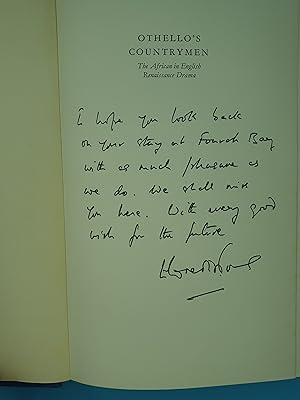 OTHELLO'S
COUNTRYMEN
The African in English
Renaissance Drama
I hope you look back
on your stay at Fourah Bay
with as much pleasure as
we do. We shall miss
you here. With every good
wish for the future